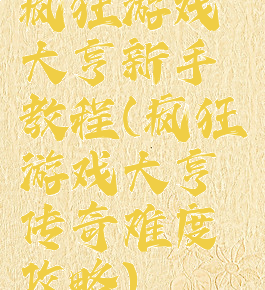 疯狂游戏
大亨新手
教程(疯狂
游戏大亨
传奇难度
攻略)